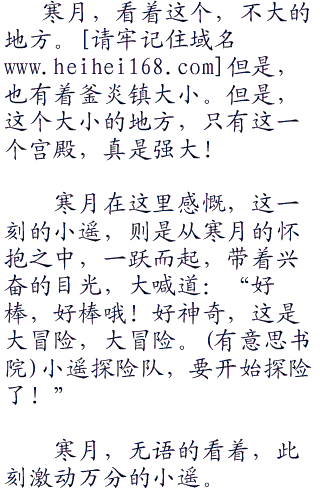 寒月，看着这个，不大的
地方。[请牢记住域名
www.heihei168.com]但是，
也有着釜炎镇大小。但是，
这个大小的地方，只有这一
个宫殿，真是强大！
寒月在这里感慨，这一
刻的小遥，则是从寒月的怀
抱之中，一跃而起，带着兴
奋的目光，大喊道：“好
棒，好棒哦！好神奇，这是
大冒险，大冒险。(有意思书
院)小遥探险队，要开始探险
了！”
寒月，无语的看着，此
刻激动万分的小遥。